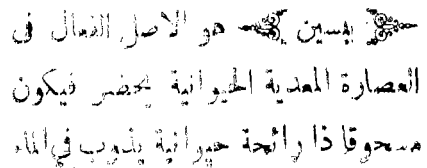 بپسين هو الاصل الفعال فى
العصارة المعدية الحيوانية يحضر فيكون
مسحوقا ذا رائحة حيوانية يذوب في الماء